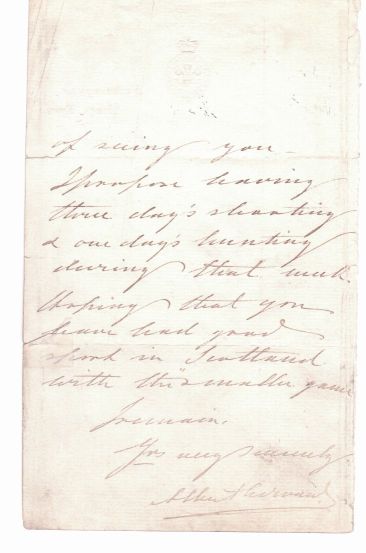 of seeing you –
I propose having
three day's shooting
& one day's hunting
during that week.
Hoping that you
have had good
sport in Scotland
with the smaller game
I remain,
Yrs very sincerely
Albert Edward